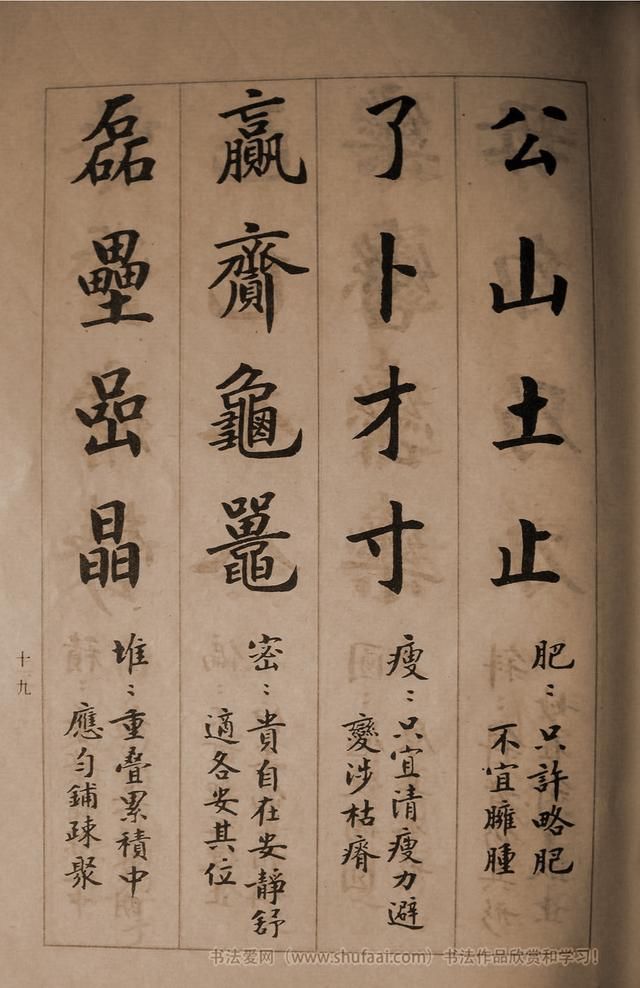 公山土止
肥：只許略肥
不宜臃腫
了卜才寸
瘦：只宜清瘦力避
變涉枯瘠
贏齎龜鼉
密：貴自在安靜舒
適各安其位
磊壘嵒晶
堆：重叠累積中
應勻鋪疎聚
十九
书法爱网（www.shufaai.com）书法作品欣赏和学习！